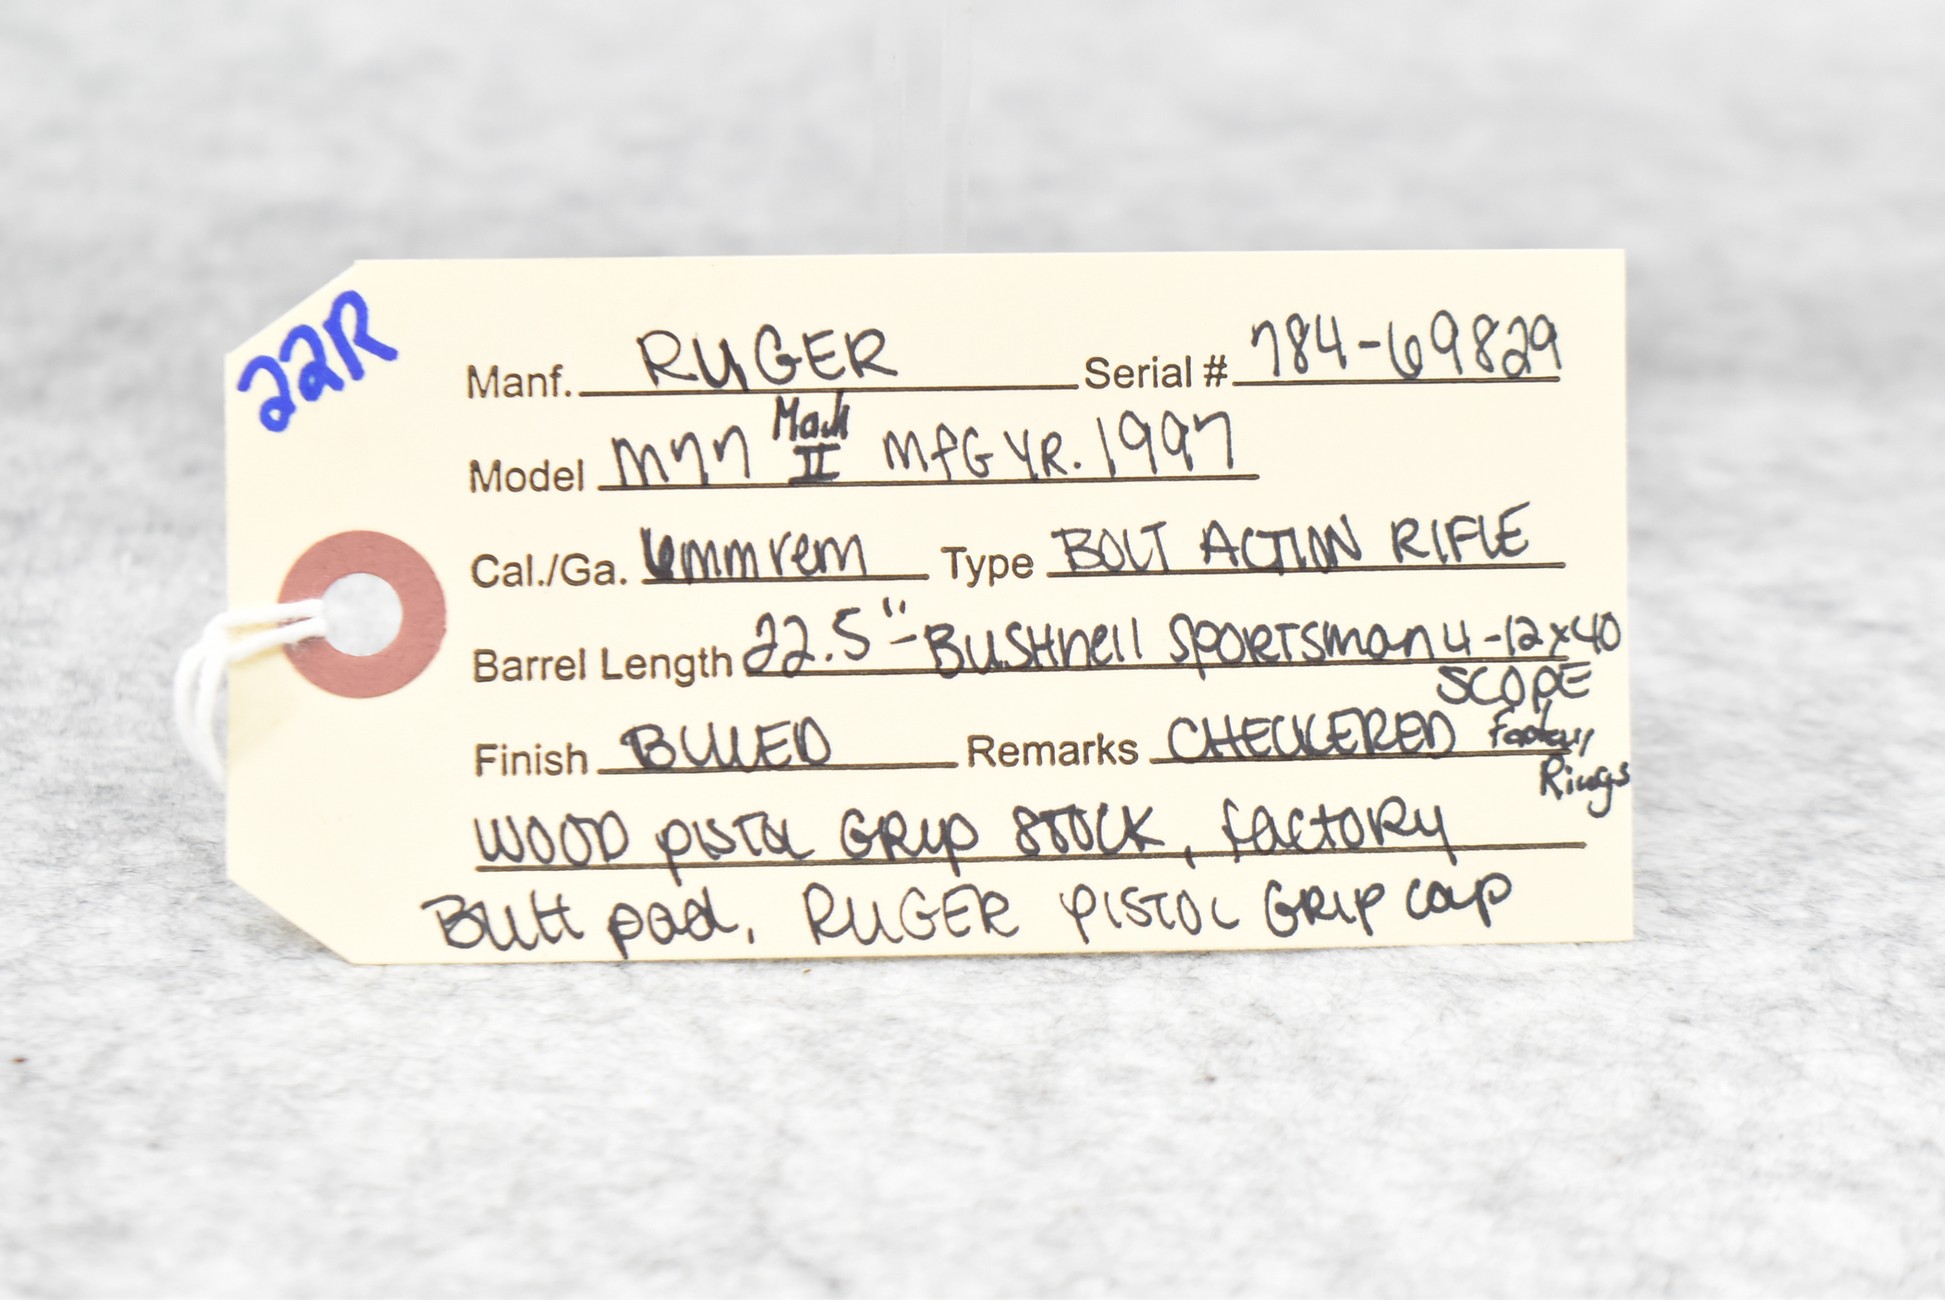 22R
Manf. RUGER Serial # 784-69829
Model M77 Mark II MFG YR. 1997
Cal./Ga. 6mm rem Type BOLT ACTION RIFLE
Barrel Length 22.5" - BUSHnell SPORTSman 4-12x40
SCOPE
Finish BLUED Remarks CHECKERED Factory
Rings
WOOD PISTOL GRIP STOCK, FACTORY
Butt pad, RUGER PISTOL GRIP cap